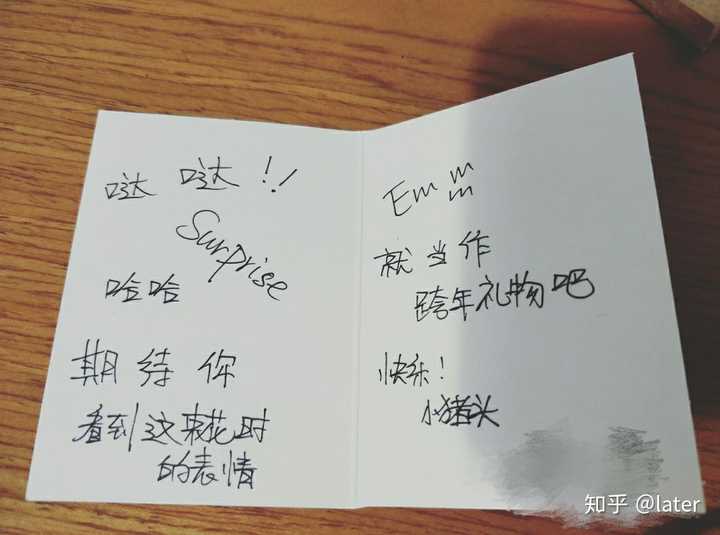 哒 哒!!
Surprise
哈哈
期待你
看到这束花时
的表情
Emmmm
就当作
跨年礼物吧
快乐!
小猪头
知乎 @later